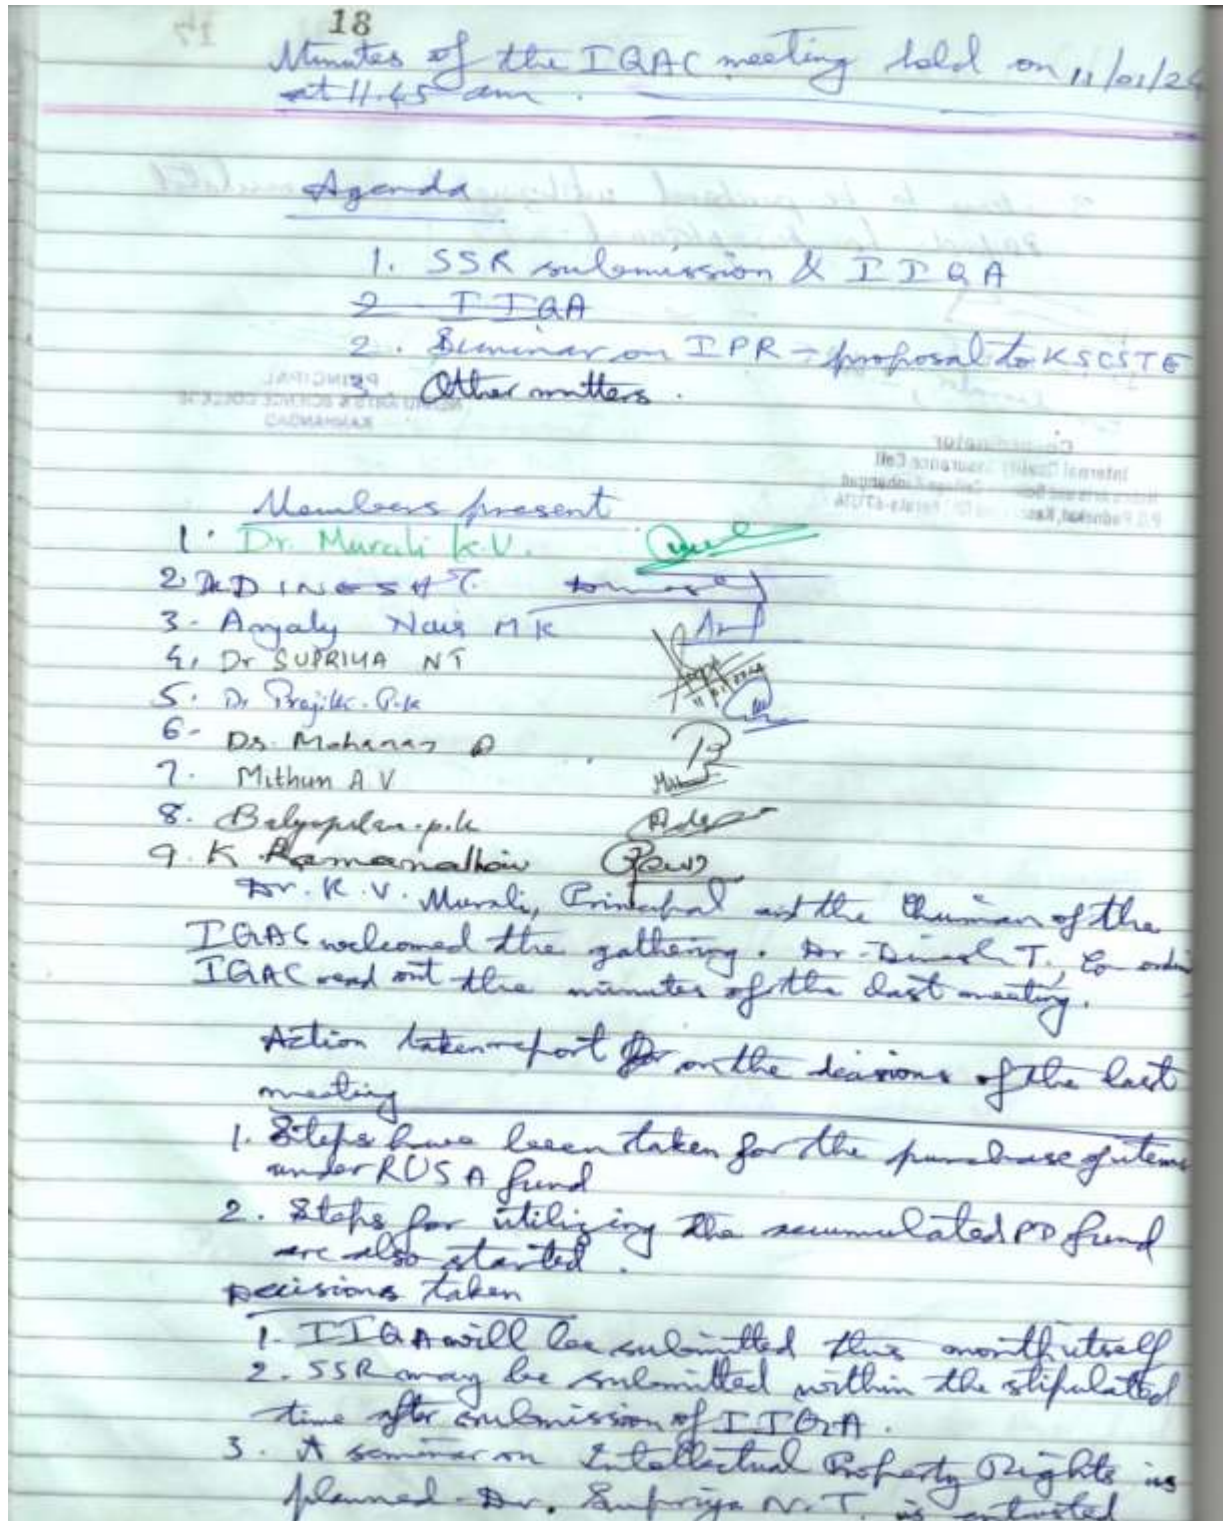 18
Minutes of the IQAC meeting held on 11/01/24
at 11.45 am.
Agenda
1. SSR submission & IIQA
2 IIQA
2. Seminar on IPR - proposal to KSCSTE
3. Other matters.
Members present
1. Dr. Murali K.V.
2. DINESH T.
3. Anjaly Nair MK
4. Dr SUPRIYA NT
5. Dr Prajitha P.K
6. Dr. Mohanan
7. Mithun A V
8. Balgopalan.p.k
9. K Ramanathan
Dr. K.V. Murali, Principal and the Chairman of the
IQAC welcomed the gathering. Dr. Dinesh T., Co-ordin
IQAC read out the minutes of the last meeting.
Action taken report on the decisions of the last
meeting
1. Steps have been taken for the purchase of items
under RUSA fund
2. Steps for utilizing the accumulated PD fund
are also started.
Decisions taken
1. IIQA will be submitted this month itself
2. SSR may be submitted within the stipulated
time after submission of IIQA.
3. A seminar on Intellectual Property Rights is
planned. Dr. Supriya N.T. is entrusted